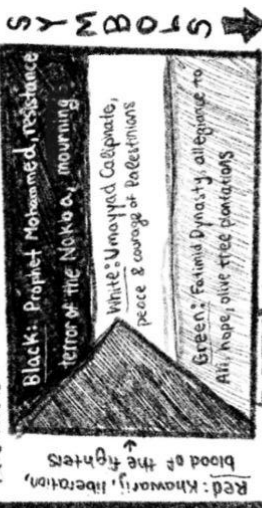 SYMBOLS
Black: Prophet Mohammed, resistance
terror of the Nakba, mourning
White: Umayyad Caliphate,
peace & courage of Palestinians
Green: Fatimid Dynasty, allegiance to
Ali, hope, olive tree plantations
Red: Khawarij, liberation,
blood of the fighters